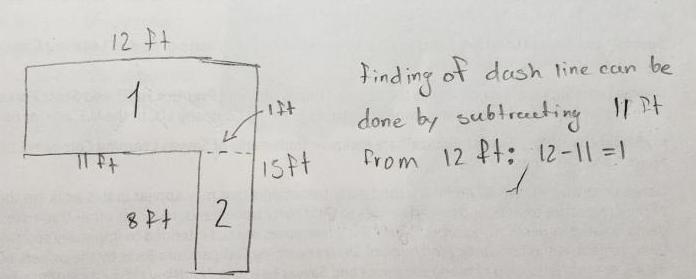 12 ft
1
1ft
11 ft
15ft
8 ft
2
finding of dash line can be
done by subtracting 11 ft
from 12 ft: 12-11=1